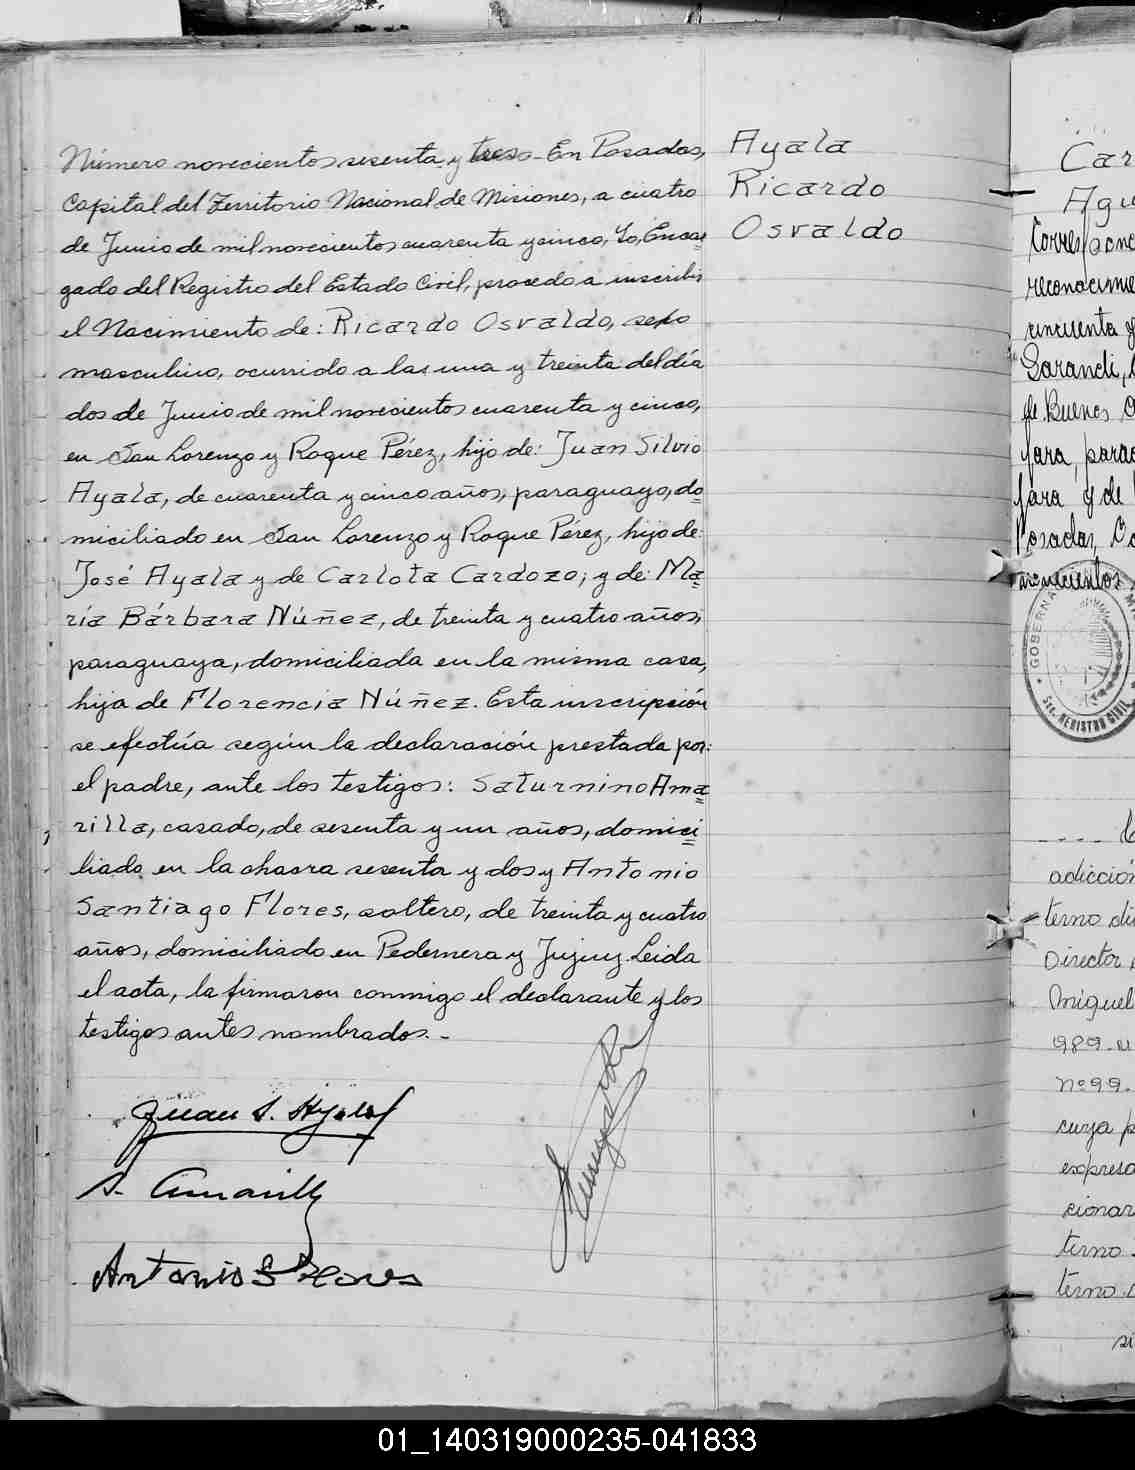 Número novecientos sesenta y tres - En Posadas,
Capital del Territorio Nacional de Misiones, a cuatro
de Junio de mil novecientos cuarenta y cinco, Yo, Encar
gado del Registro del Estado Civil, procedo a inscribir
el Nacimiento de: Ricardo Osvaldo, sexo
masculino, ocurrido a las una y treinta del día
dos de Junio de mil novecientos cuarenta y cinco,
en San Lorenzo y Roque Pérez, hijo de: Juan Silvio
Ayala, de cuarenta y cinco años, paraguayo, do
miciliado en San Lorenzo y Roque Pérez, hijo de:
José Ayala y de Carlota Cardozo; y de: Ma
ría Bárbara Núñez, de treinta y cuatro años,
paraguaya, domiciliada en la misma casa,
hija de Florencia Núñez. Esta inscripción
se efectúa según la declaración prestada por:
el padre, ante los testigos: Saturnino Ama
rilla, casado, de sesenta y un años, domici
liado en la chacra sesenta y dos y Antonio
Santiago Flores, soltero, de treinta y cuatro
años, domiciliado en Pedernera y Jujuy. Leida
el acta, la firmaron conmigo el declarante y los
testigos antes nombrados. -
Juan S. Ayala
S. Amarilla
Antonio S Flores
Ayala
Ricardo
Osvaldo
Car
Agu
Corresponde
reconocimie
cincuenta y
Sarandi,
de Buenos
para
y de
Posadas, Co
novecientos
GOBERNA
Sec. REGISTRO CIVIL
adicción
terno di
Director
Miguel
989.
Nº 99.
cuya p
expresa
cionar
terno
terno
si
01_140319000235-041833